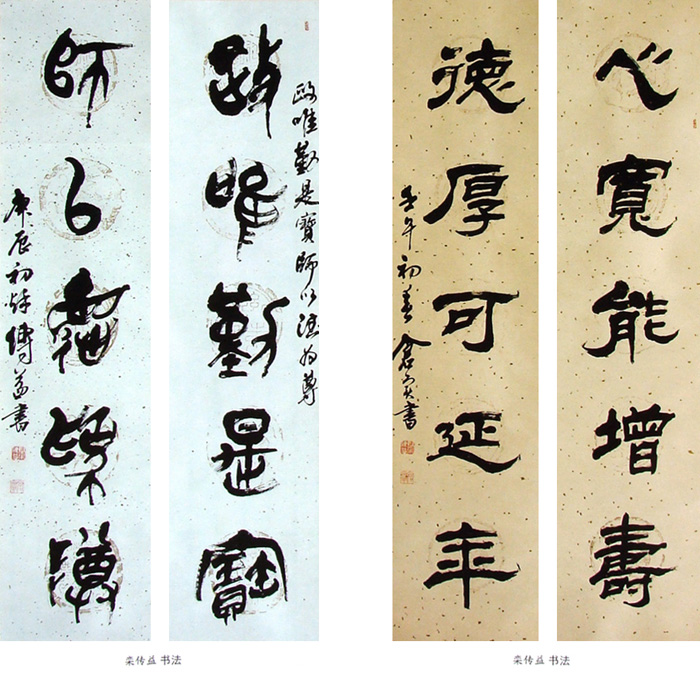 心寬能增壽
德厚可延年
壬午初春書
政唯勤是寶師以德为尊
政唯勤是寶
師以德為尊
庚辰初秋傳益書
栾传益 书法
栾传益 书法